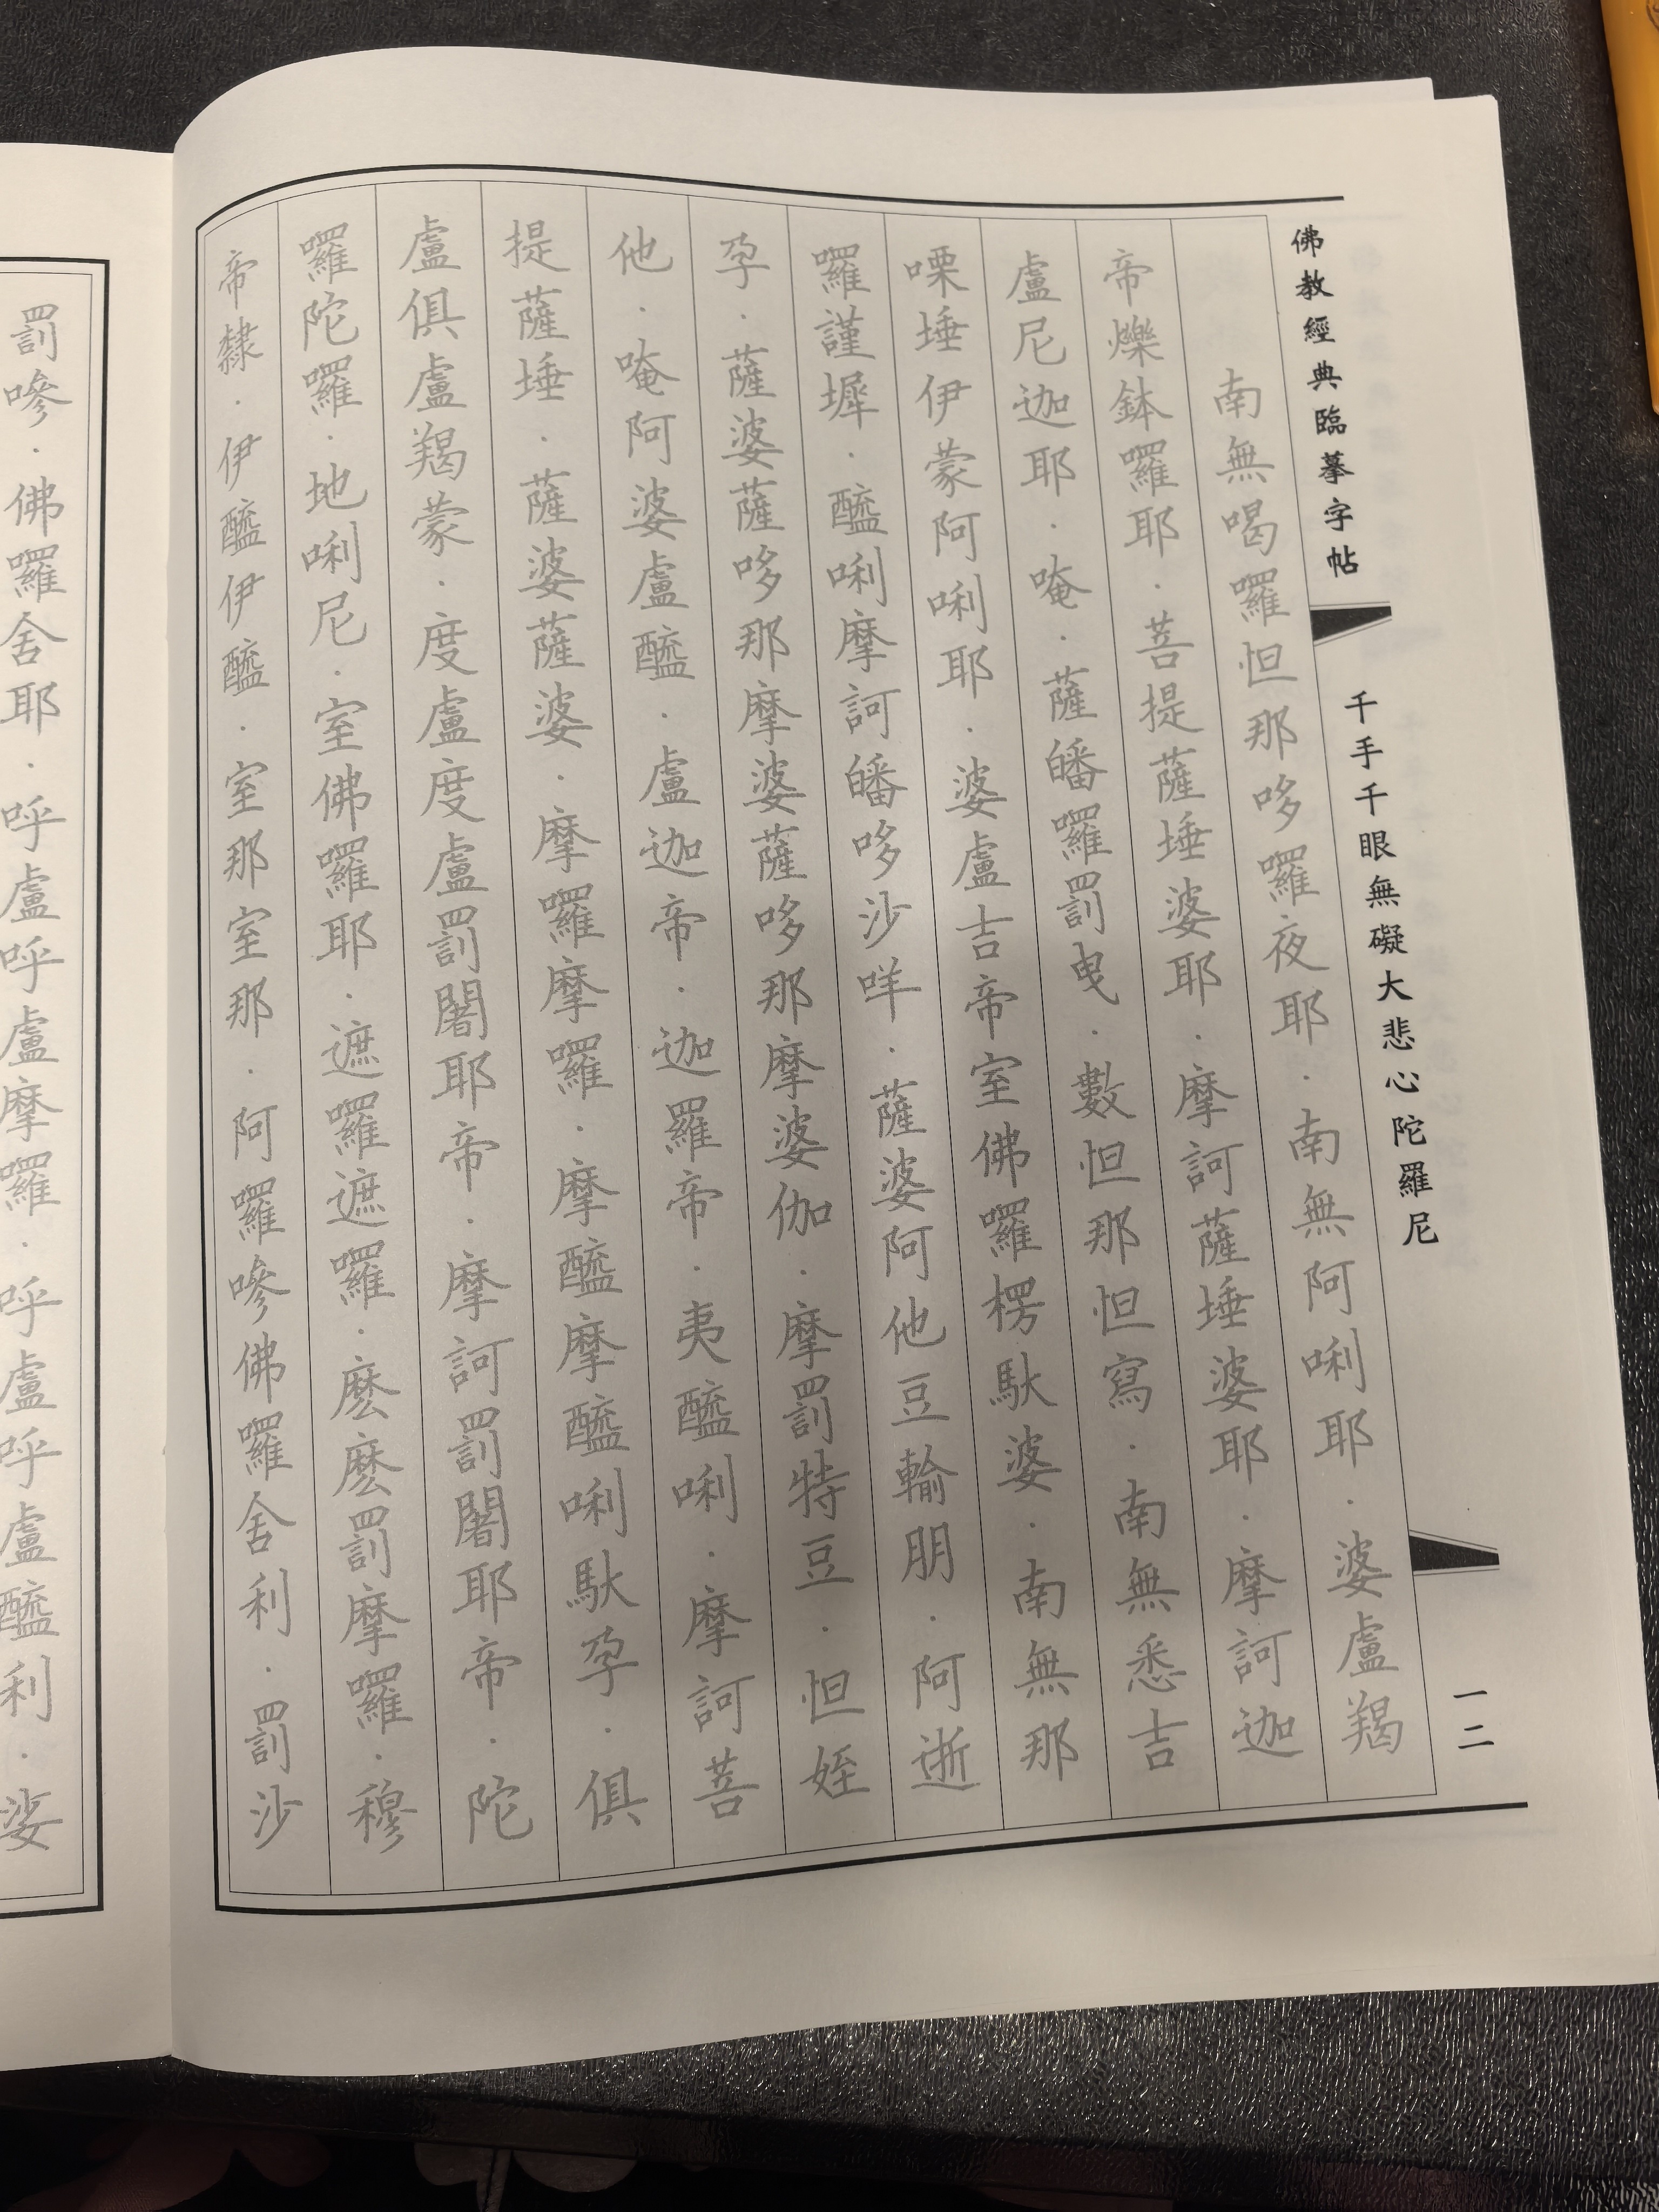 佛教經典臨摹字帖
千手千眼無礙大悲心陀羅尼
一二
南無喝囉怛那哆囉夜耶．南無阿唎耶．婆盧羯
帝爍鉢囉耶．菩提薩埵婆耶．摩訶薩埵婆耶．摩訶迦
盧尼迦耶．唵．薩皤囉罰曳．數怛那怛寫．南無悉吉
嘌埵伊蒙阿唎耶．婆盧吉帝室佛囉楞馱婆．南無那
囉謹墀．醯唎摩訶皤哆沙咩．薩婆阿他豆輸朋．阿逝
孕．薩婆薩哆那摩婆薩哆那摩婆伽．摩罰特豆．怛姪
他．唵阿婆盧醯．盧迦帝．迦羅帝．夷醯唎．摩訶菩
提薩埵．薩婆薩婆．摩囉摩囉．摩醯摩醯唎馱孕．俱
盧俱盧羯蒙．度盧度盧罰闍耶帝．摩訶罰闍耶帝．陀
囉陀囉．地唎尼．室佛囉耶．遮囉遮囉．麼麼罰摩囉．穆
帝隸．伊醯伊醯．室那室那．阿囉嘇佛囉舍利．罰沙
罰嘇．佛囉舍耶．呼盧呼盧摩囉．呼盧呼盧醯利．娑